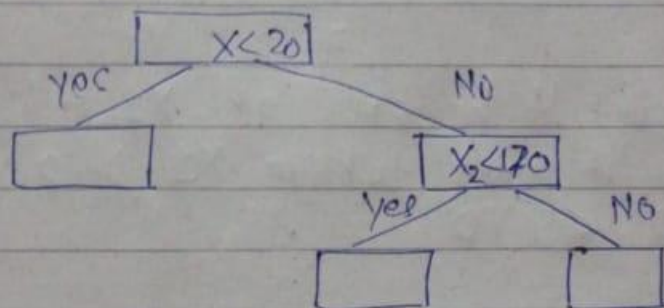 X<20
Yes No
X₂<170
Yes No